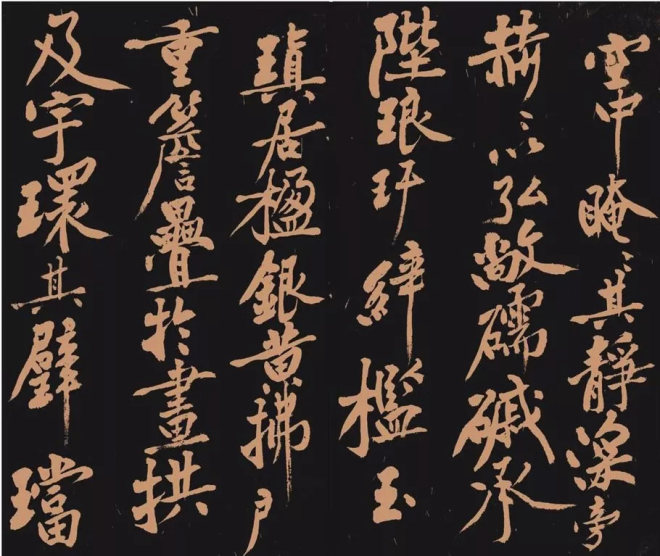 空中晻〻其靜深旁
赫〻以弘敞礝磩承
陛琅玕綷檻玉
瑱居楹銀黄拂戶
重簷疊於畫拱
及宇環其壁璫